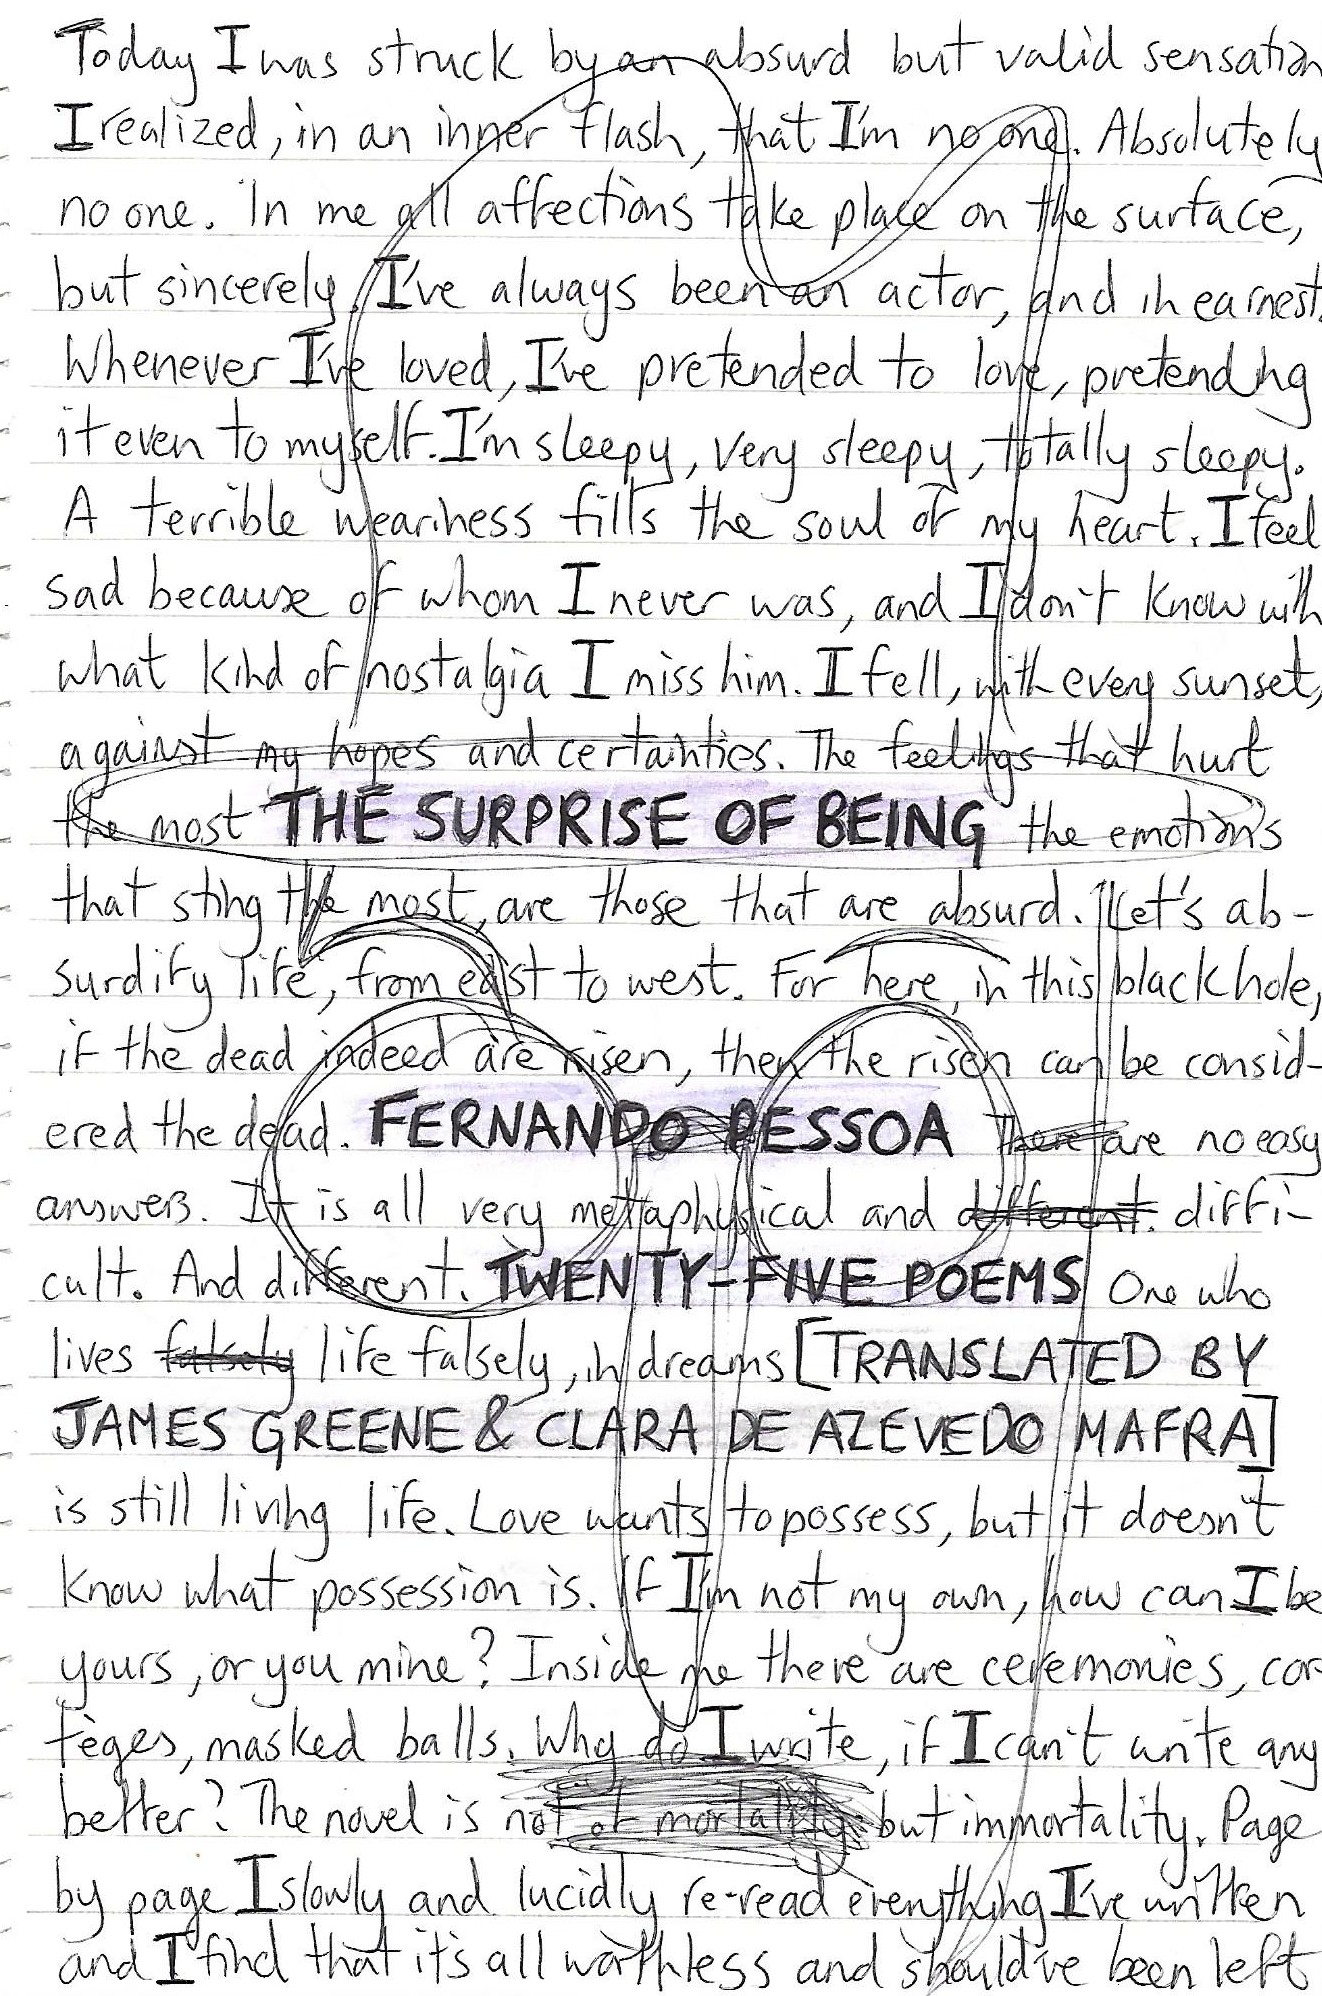 Today I was struck by an absurd but valid sensation
I realized, in an inner flash, that I'm no one. Absolutely
no one. In me all affections take place on the surface,
but sincerely. I've always been an actor, and in earnest.
Whenever I've loved, I've pretended to love, pretending
it even to myself. I'm sleepy, very sleepy, totally sleepy.
A terrible weariness fills the soul of my heart. I feel
sad because of whom I never was, and I don't know with
what kind of nostalgia I miss him. I fell, with every sunset,
against my hopes and certainties. The feelings that hurt
the most THE SURPRISE OF BEING the emotions
that sting the most, are those that are absurd. Let's ab-
surdify life, from east to west. For here, in this black hole,
if the dead indeed are risen, then the risen can be consid-
ered the dead. FERNANDO PESSOA There are no easy
answers. It is all very metaphysical and different. diffi-
cult. And different. TWENTY-FIVE POEMS One who
lives falsely life falsely, in dreams [TRANSLATED BY
JAMES GREENE & CLARA DE AZEVEDO MAFRA]
is still living life. Love wants to possess, but it doesn't
know what possession is. If I'm not my own, how can I be
yours, or you mine? Inside me there are ceremonies, cor
tèges, masked balls. Why do I write, if I can't write any
better? The novel is not of mortality, but immortality. Page
by page I slowly and lucidly re-read everything I've written
and I find that it's all worthless and should've been left